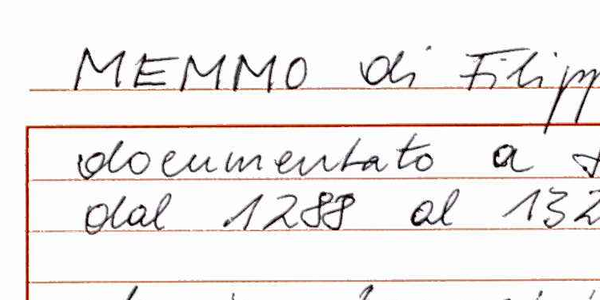 MEMMO di Filipp
documentato a
dal 1288 al 132